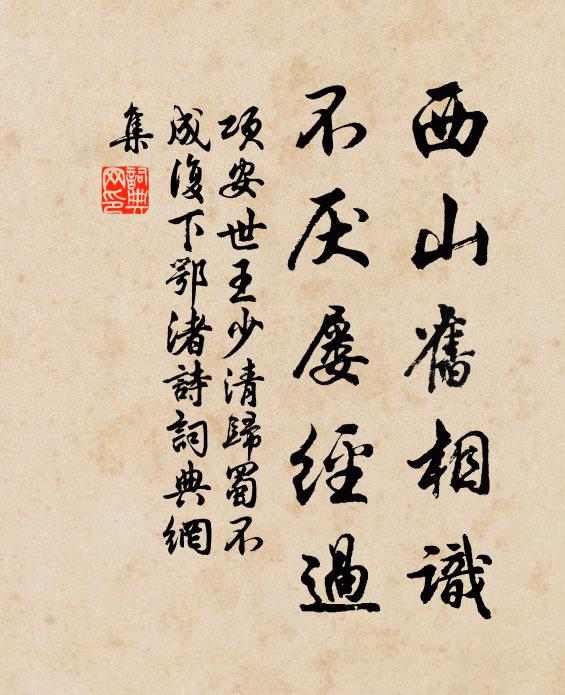 西山舊相識
不厌屡經過
项安世王少清歸蜀不
成復下鄂渚詩詞典網
集
詞典網印